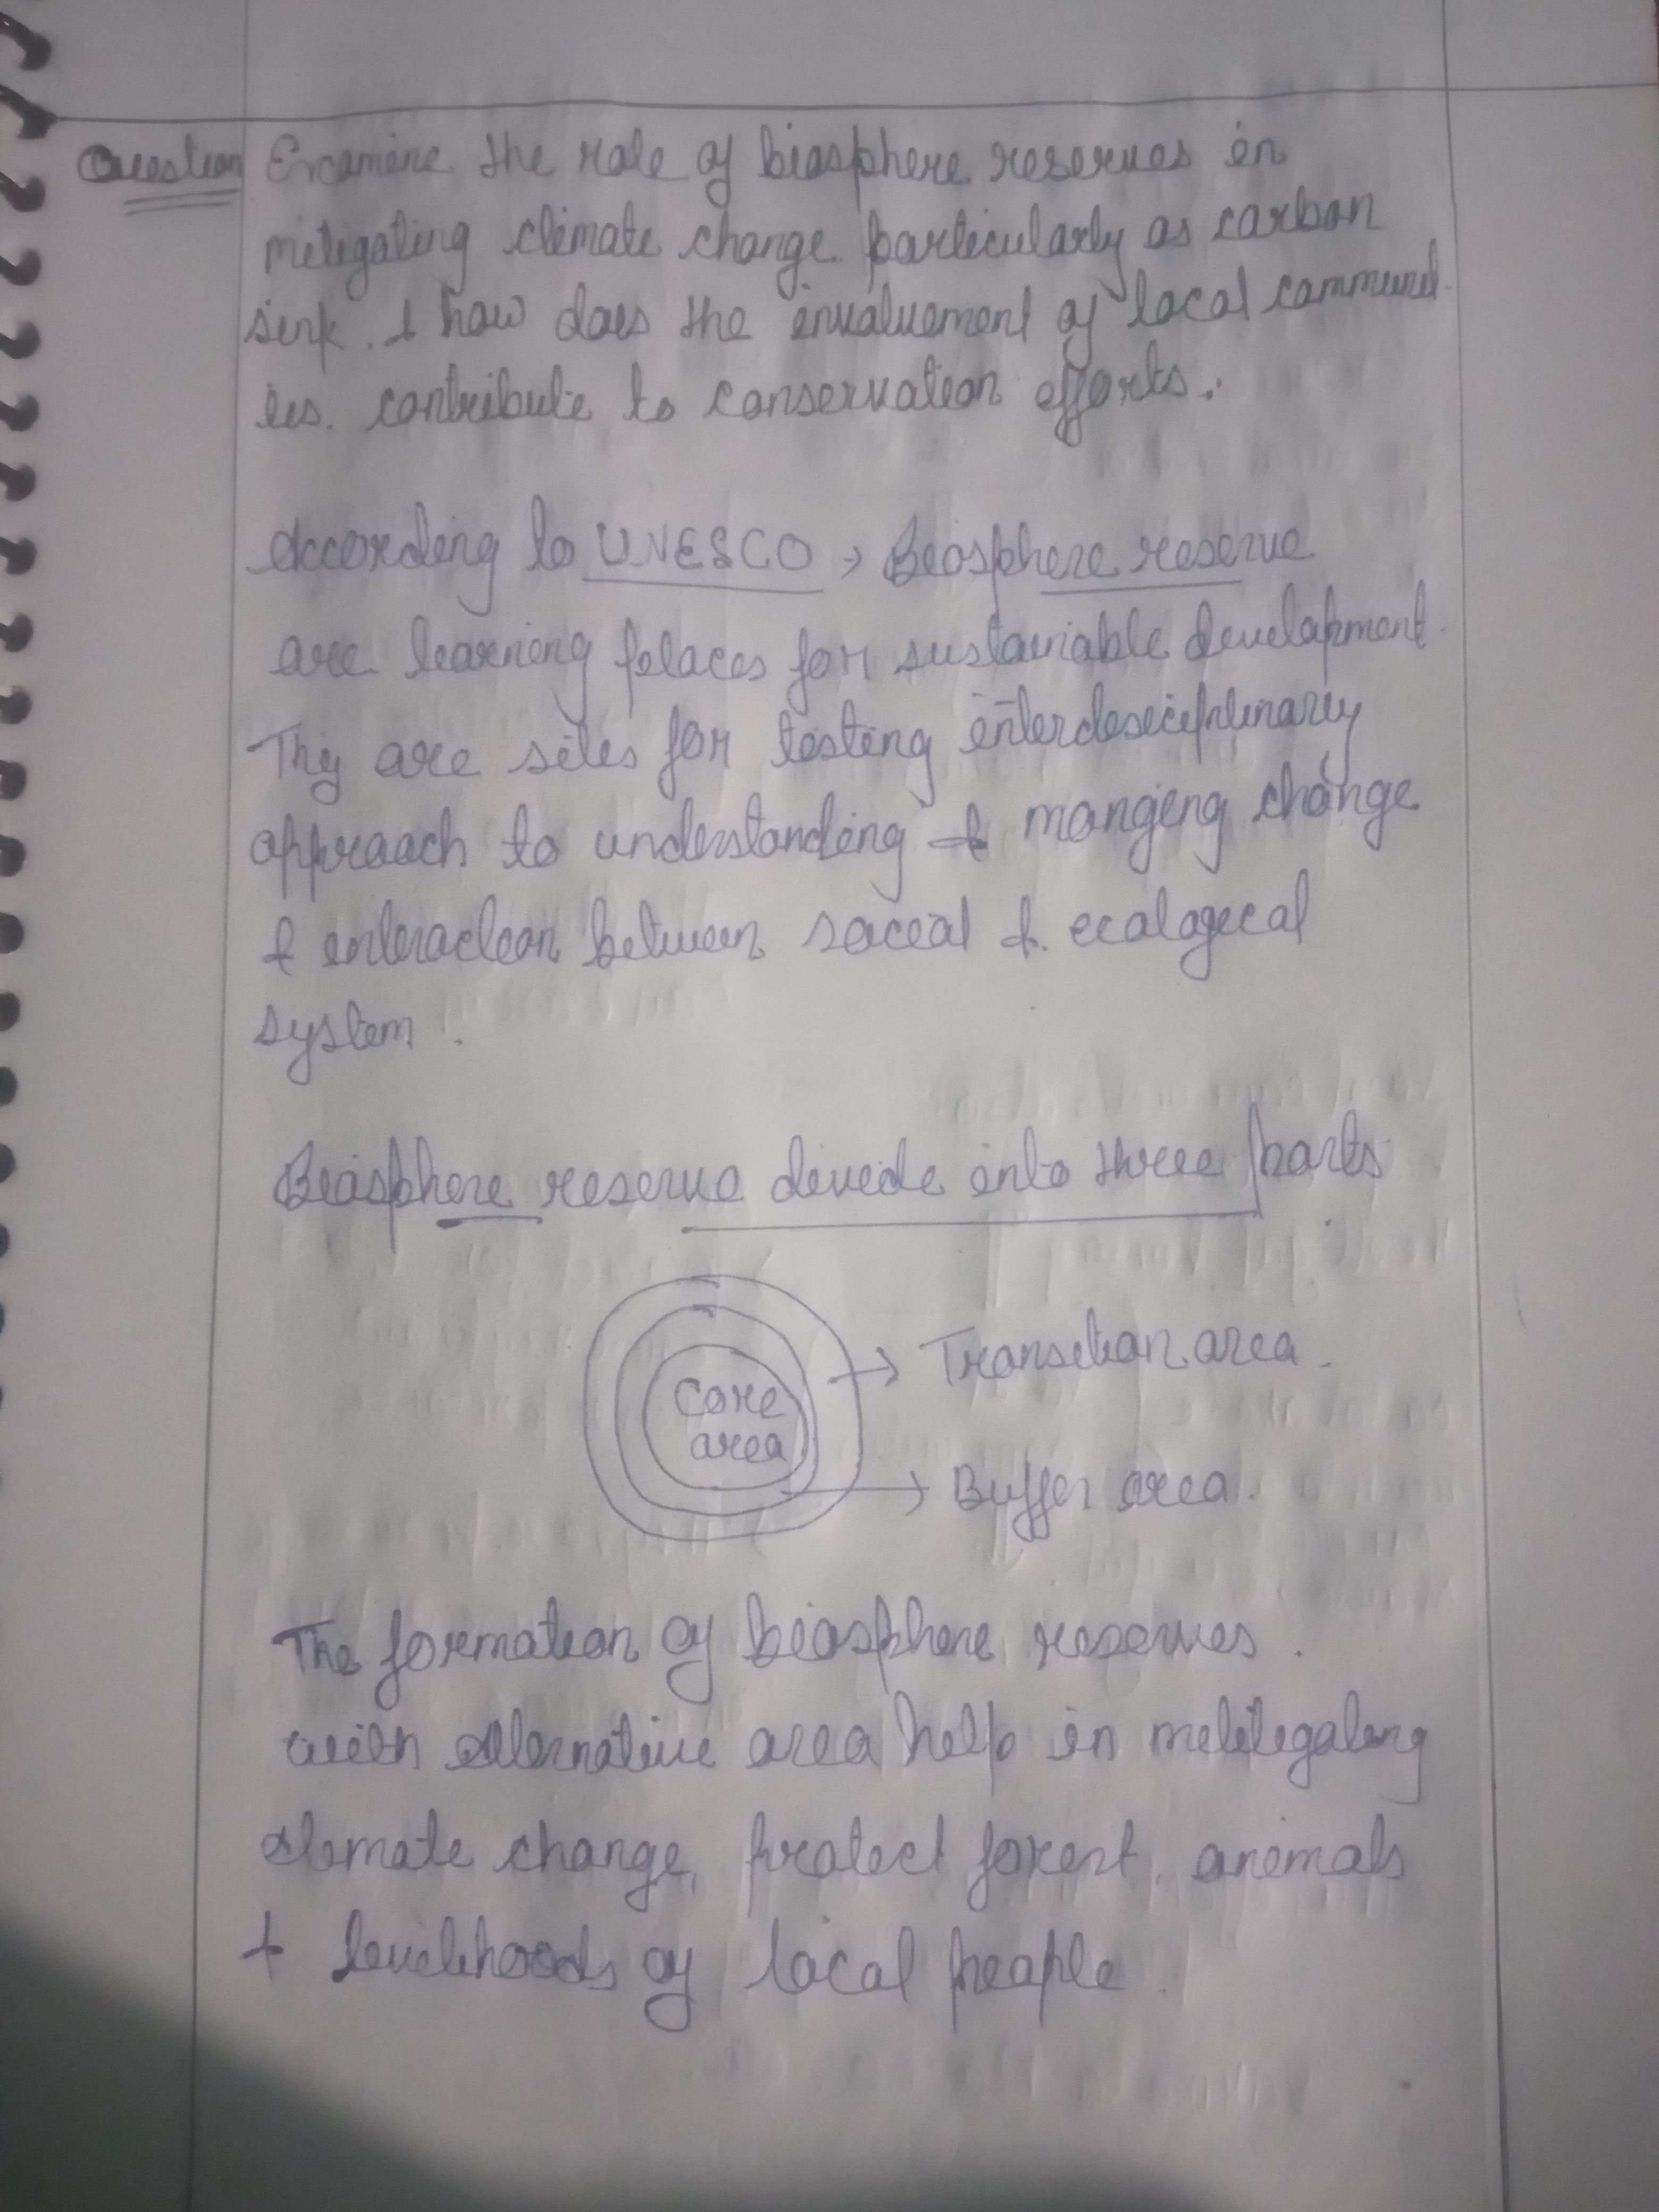 Question Examine the role of biosphere reserves in
mitigating climate change particularly as carbon
sink. & how does the involvement of local communit
ies. contribute to conservation efforts.
According to UNESCO, Biosphere reserve
are learning places for sustainable development.
They are sites for testing interdisciplinary
approach to understanding & manging change
& interaction between social & ecological
system.
Biosphere reserve divide into three parts
Core
area
Transition area.
Buffer area.
The formation of biosphere reserves.
with alternative area help in mitigating
climate change, protect forest, animals
& livelihoods of local people.